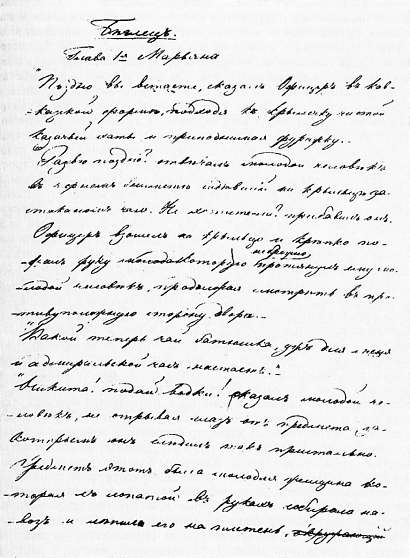 Бѣглецъ.
Глава 1я Марьяна
"Поздно вы встаете, сказалъ Офицеръ въ кав-
казкой формѣ, подходя къ крылечку чистой
казачьей хаты и приподнимая фуражку.
"Развѣ поздно? отвѣчалъ молодой человѣкъ
въ черномъ бешметѣ сидѣвшій на крыльцѣ за
стаканомъ чаю. Не хотите ли? прибавилъ онъ.
Офицеръ взошелъ на крыльцо и крѣпко по-
жалъ руку которую небрежно протянулъ ему мо-
лодой человѣкъ, продолжая смотрѣть въ про-
тивуположную сторону двора.
"Какой теперь чай батюшка, ужъ для меня
и адмиральской часъ настаетъ."
"Никита! подай водки! сказалъ молодой че-
ловѣкъ, не отрывая глазъ отъ предмета, за
которымъ онъ слѣдилъ такъ пристально.
Предметъ этотъ была молодая женщина ко-
торая съ лопатой въ рукахъ собирала на-
возъ и лѣпила его на плетень,